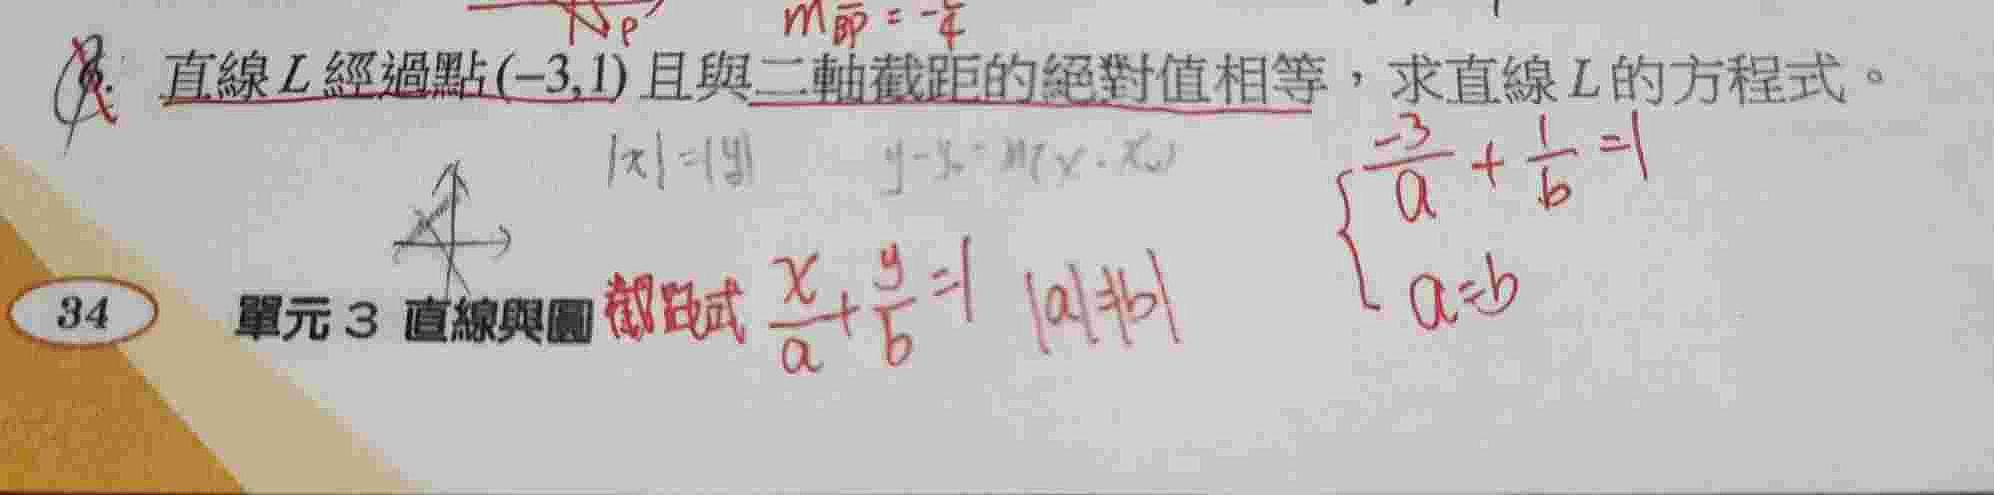 m = -
直線L經過點(−3,1)且與二軸截距的絕對值相等,求直線L的方程式。
|x|=|y| y-y₀=m(x-x₀)
-3/a + 1/b =1
a=b
34 單元 3 直線與圓
截距式 x/a + y/b =1 |a|=|b|